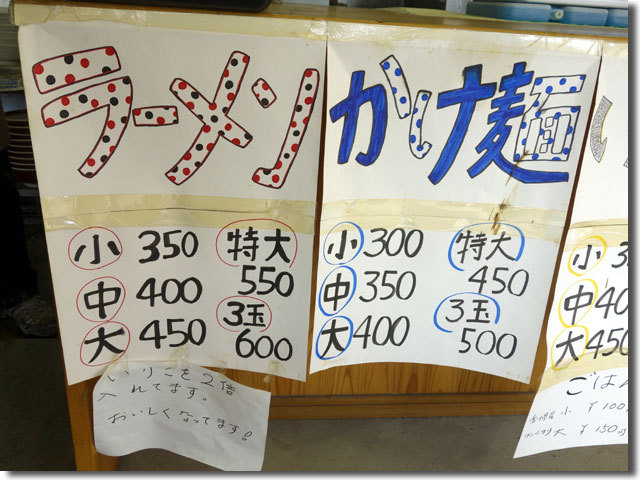 ラーメン
小 350
中 400
大 450
特大
550
3玉
600
いりこを2倍
入れてます。
おいしくなってます!
かけ麺
小 300
中 350
大 400
特大
450
3玉
500
い
小 3
中 40
大 450
ごはん
小 ¥100
大 ¥150円